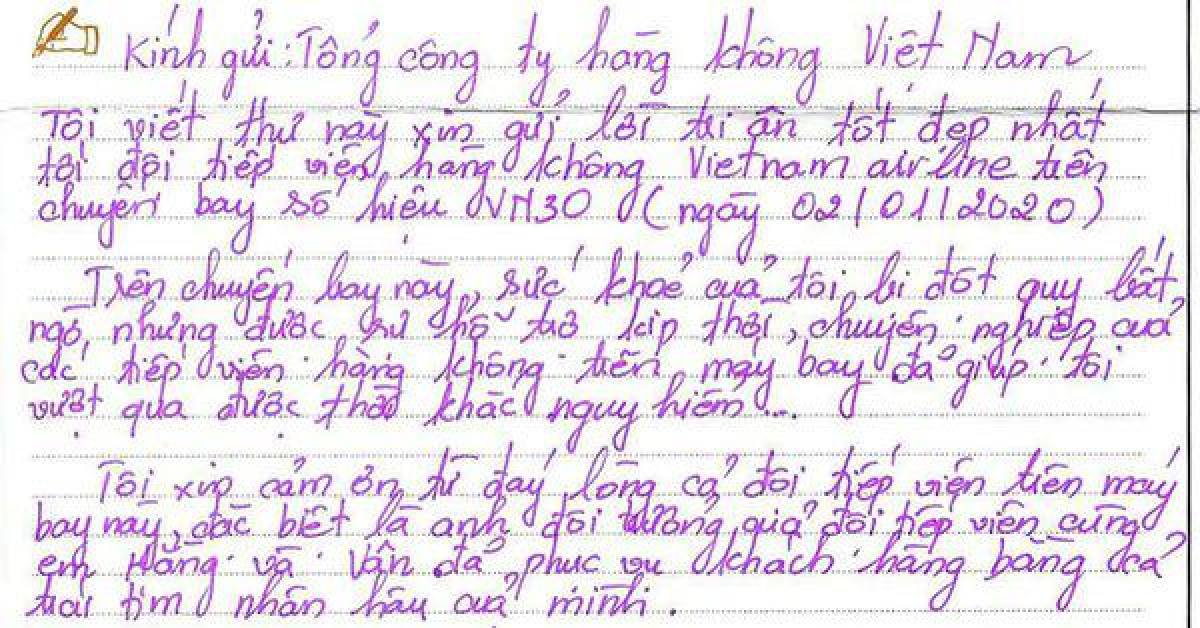 Kính gửi: Tổng công ty hàng không Việt Nam
Tôi viết thư này xin gửi lời tri ân tốt đẹp nhất
tới đội tiếp viên hàng không Vietnam airline trên
chuyến bay số hiệu VN30 (ngày 02/01/2020)
Trên chuyến bay này, sức khoẻ của tôi bị đột quỵ bất
ngờ, nhưng được sự hỗ trợ kịp thời, chuyên nghiệp của
các tiếp viên hàng không trên máy bay đã giúp tôi
vượt qua được thời khắc nguy hiểm...
Tôi xin cảm ơn từ đáy lòng cả đội tiếp viên trên máy
bay này, đặc biệt là anh đội trưởng của đội tiếp viên cùng
em Hằng và Vân đã phục vụ khách hàng bằng cả
trái tim nhân hậu của mình.